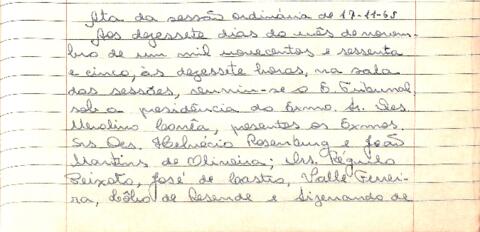 Ata da sessão ordinária de 17-11-65
Aos dezessete dias do mês de novem-
bro de um mil novecentos e sessenta
e cinco, às dezessete horas, na sala
das sessões, reuniu-se o E. Tribunal,
sob a presidência do Exmo. Sr. Des.
Merolino Corrêa, presentes os Exmos.
Srs. Des. Helvécio Rosenburg e João
Martins de Oliveira; Drs. Régulo
Peixoto, José de Castro, Valle Ferrei-
ra, Célio de Resende e Sizenando de